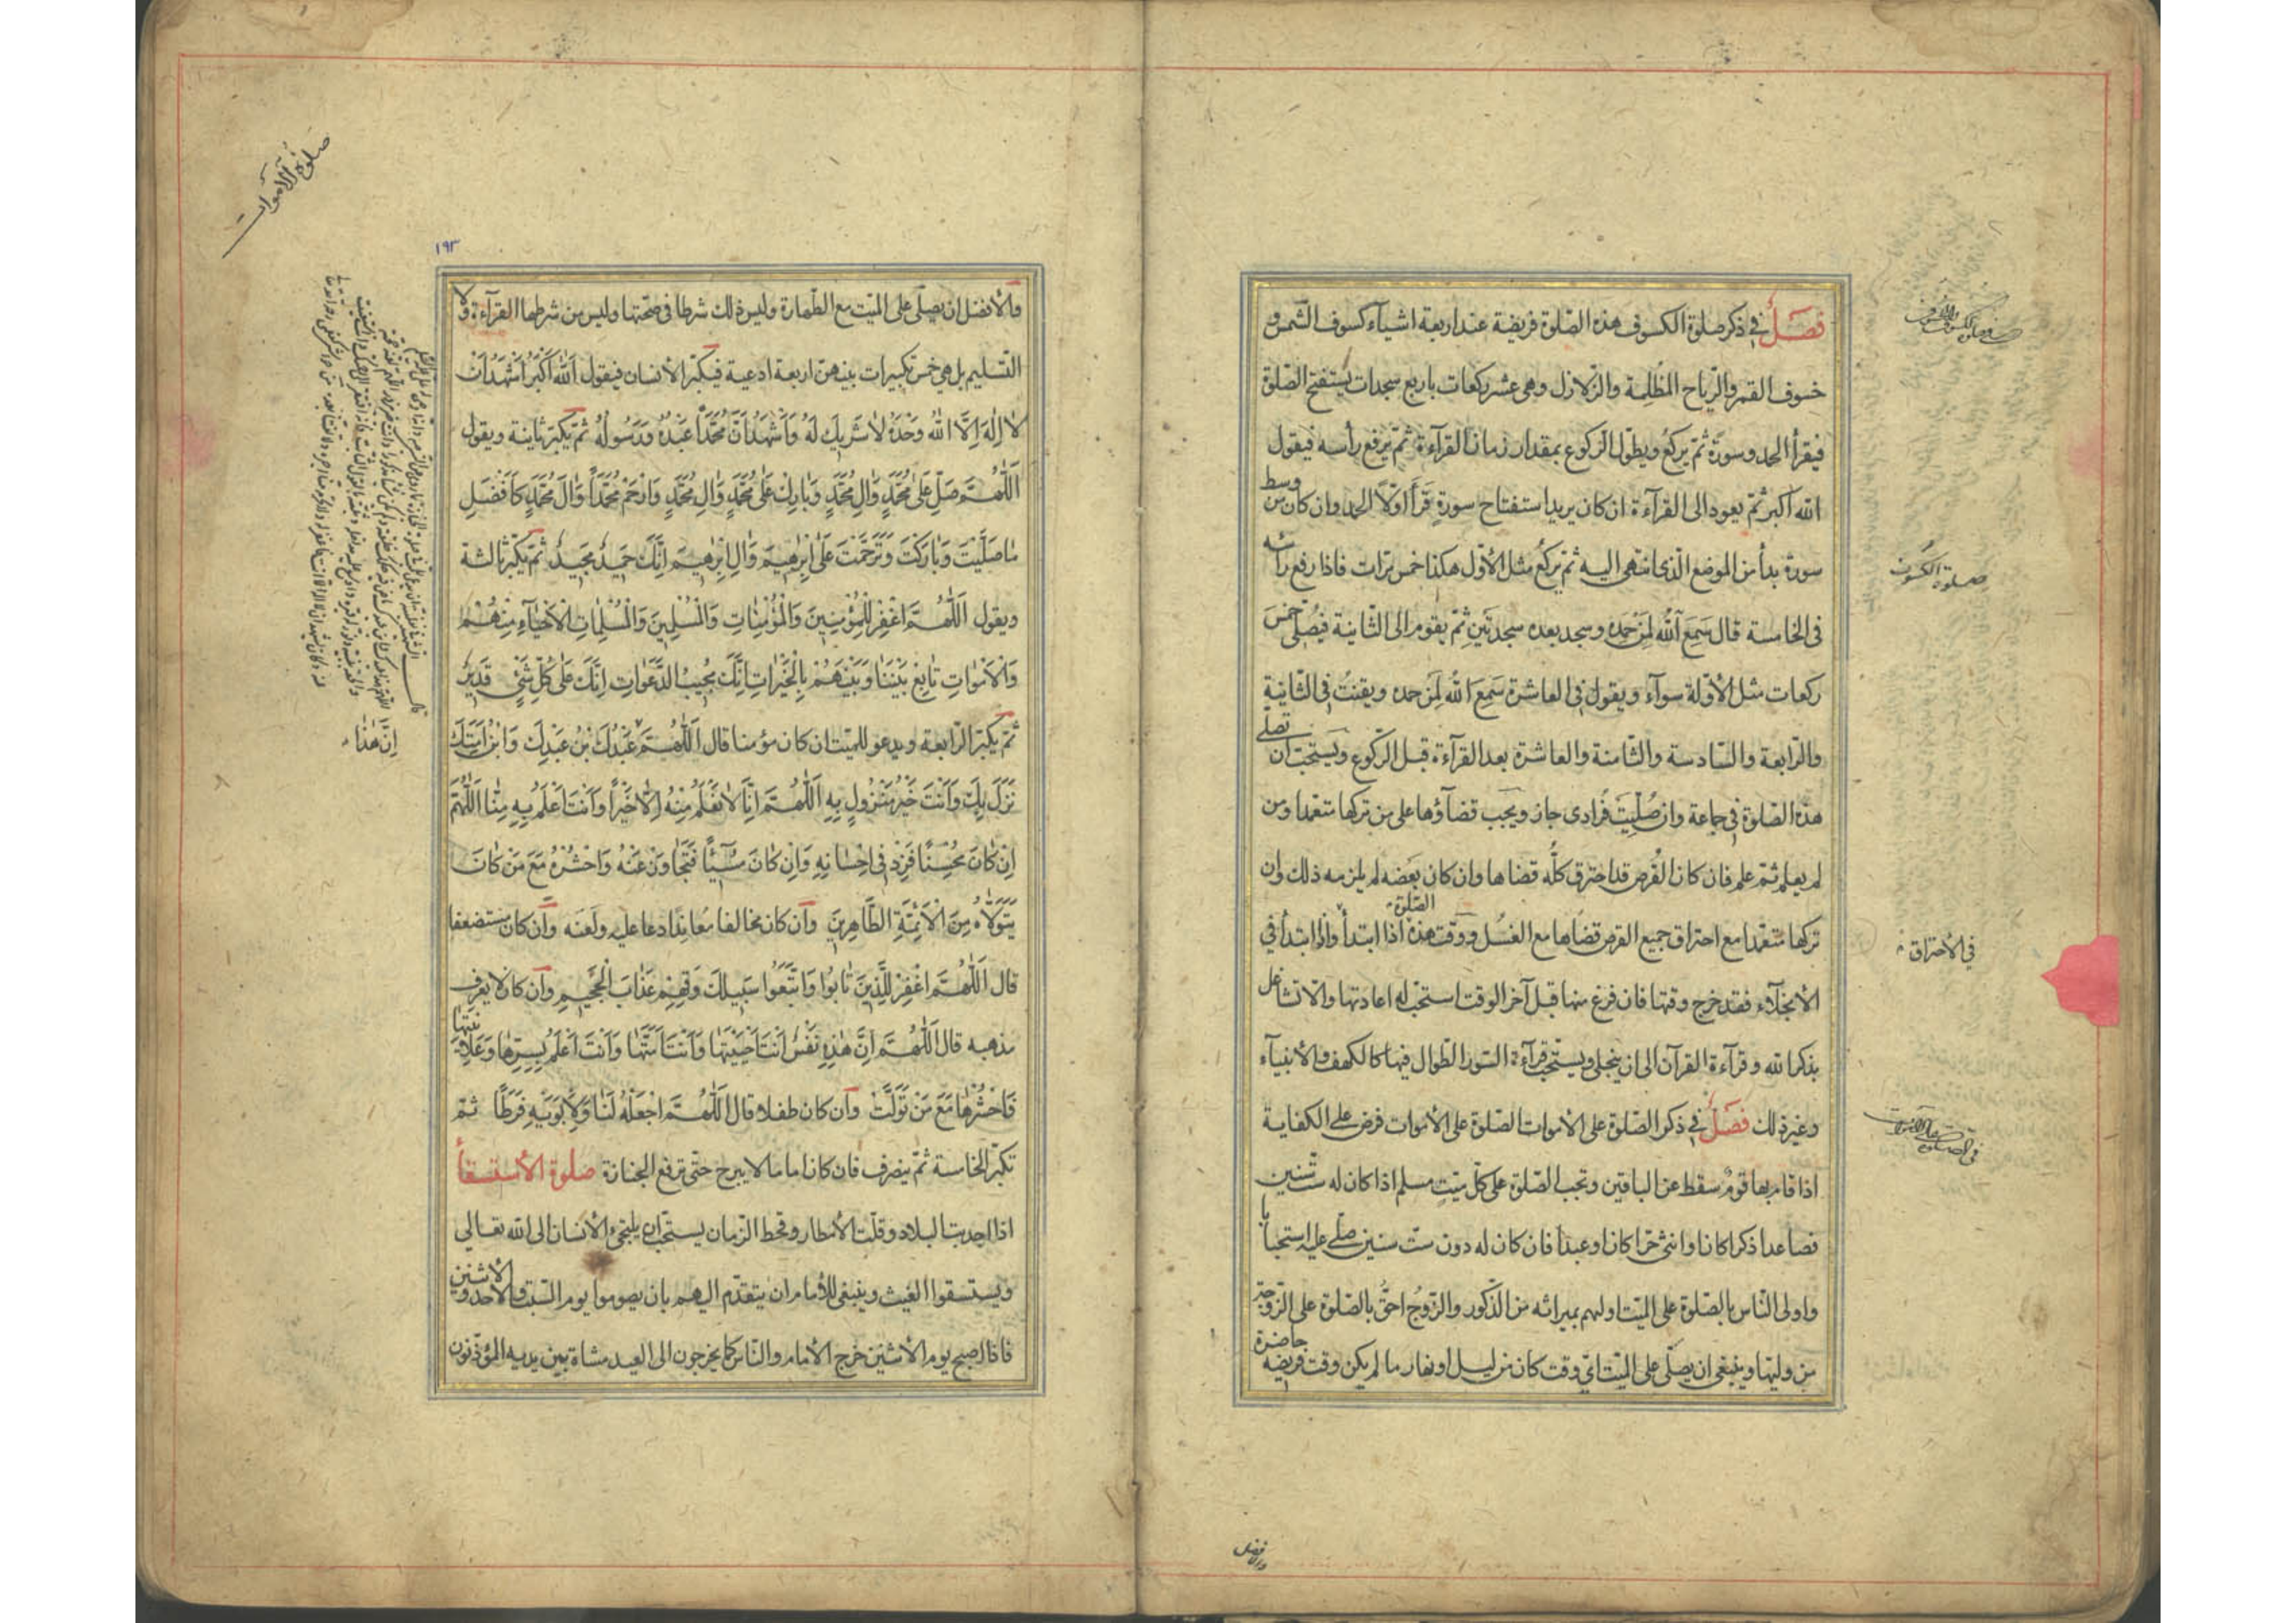 فصل في ذكر صلوة الكسوف هذه الصّلوة فريضة عند اربعة اشيآء كسوف الشّمس و
خسوف القمر والرّياح المظلمة والزّلازل وهى عشر ركعات باربع سجدات يستفتح الصّلوة
فيقرأ الحمد وسورة ثمّ يركع ويطوّل الركوع بمقدار زمان القرآءة ثمّ يرفع رأسه فيقول
الله اكبر ثمّ يعود الى القرآءة ان كان يريد استفتاح سورةٍ قرأ اوّلاً الحمد وان كان من وسط
سورة بدأ من الموضع الّذى انتهى اليه ثمّ يركع مثل الأوّل هكذا خمس مرّات فاذا رفع رأسه
فى الخامسة قال سَمِعَ اللّه لِمَن حمده وسجد بعده سجدتين ثمّ يقوم الى الثّانية فيُصلّى خمس
ركعات مثل الأوّلة سوآء ويقول فى العاشرة سَمِعَ اللّهُ لِمَن حمده ويقنت فى الثّانية
والرّابعة والسّادسة والثّامنة والعاشرة بعد القرآءة قبل الرّكوع ويستحبّ ان تصلّى
هذه الصّلوة فى جماعة وان صُلّيت فُرادى جاز ويجب قضآؤها على من تركها متعمّدا ومن
لم يعلم ثمّ علم فان كان القرص قد احترق كلّه قضاها وان كان بعضه لم يلزمه ذلك وان
تركها متعمّدا مع احتراق جميع القرص قضاها مع الغسل ووقت هذه الصّلوة اذا ابتدأ واذا ابتدأ فى
الأنجلآء فقد خرج وقتها فان فرغ منها قبل آخر الوقت استحبّ له اعادتها والّا تشاغل
بذكر الله وقرآءة القرآن الى ان ينجلى ويستحبّ قرآءة السّور الطّوال فيها كالكهف والأنبيآء
وغير ذلك فصل فى ذكر الصّلوة على الأموات الصّلوة على الأموات فرض على الكفاية
اذا قام بها قومٌ سقط عن الباقين وتجب الصّلوة على كلّ ميّتٍ مسلم اذا كان له ستّ سنين
فصاعدا ذكرا كان او انثى حرّا كان او عبدا فان كان له دون ستّ سنين صلّى عليه استحبابا
واولى النّاس بالصّلوة على الميّت اولهم بميراثه من الذّكور والزّوج احقّ بالصّلوة على الزّوجة
من وليّها وينبغى ان يصلّى على الميّت اىّ وقت كان من ليل او نهار ما لم يكن وقت فريضه حاضرة
والافضل
صلوة الكسوف
فى الأحتراق
صلوة الأموات
١٩٣
والأفضل ان يصلّى على الميّت مع الطّهارة وليس ذلك شرطا فى صحّتها وليس من شرطها القرآءة ولا
التّسليم بل هى خمس تكبيرات بينهنّ اربعة ادعية فيكبّر الأنسان فيقول اَللّٰهُ اَكْبَرُ اَشْهَدُ اَنْ
لا اِلٰهَ اِلَّا اللّٰهُ وَحْدَهُ لا شَرِيكَ لَهُ وَاَشْهَدُ اَنَّ مُحَمَّداً عَبْدُهُ وَرَسُولُهُ ثمّ يكبّر ثانية ويقول
اَللّٰهُمَّ صَلِّ عَلىٰ مُحَمَّدٍ وَاٰلِ مُحَمَّدٍ وَبَارِكْ عَلىٰ مُحَمَّدٍ وَاٰلِ مُحَمَّدٍ وَارْحَمْ مُحَمَّداً وَاٰلَ مُحَمَّدٍ كَاَفْضَلِ
مٰا صَلَّيْتَ وَبَارَكْتَ وَتَرَحَّمْتَ عَلىٰ اِبْرٰهِيمَ وَاٰلِ اِبْرٰهِيمَ اِنَّكَ حَمِيدٌ مَجِيدٌ ثمّ يكبّر ثالثة
ويقول اَللّٰهُمَّ اغْفِرْ لِلْمُؤْمِنِينَ وَالْمُؤْمِنٰاتِ وَالْمُسْلِمِينَ وَالْمُسْلِمٰاتِ الْاَحْيٰآءِ مِنْهُمْ
وَالْاَمْوٰاتِ تٰابِعْ بَيْنَنٰا وَبَيْنَهُمْ بِالْخَيْرٰاتِ اِنَّكَ مُجِيبُ الدَّعَوٰاتِ اِنَّكَ عَلىٰ كُلِّ شَىْءٍ قَدِيرٌ
ثمّ يكبّر الرّابعة ويدعو للميّت ان كان مؤمنا قال اَللّٰهُمَّ عَبْدُكَ بْنُ عَبْدِكَ وَابْنُ اَمَتِكَ
نَزَلَ بِكَ وَاَنْتَ خَيْرُ مَنْزُولٍ بِهِ اَللّٰهُمَّ اِنّٰا لا نَعْلَمُ مِنْهُ اِلّٰا خَيْراً وَاَنْتَ اَعْلَمُ بِهِ مِنّٰا اَللّٰهُمَّ
اِنْ كٰانَ مُحْسِنًا فَزِدْ فِى اِحْسٰانِهِ وَاِنْ كٰانَ مُسِيئاً فَتَجٰاوَزْ عَنْهُ وَاحْشُرْهُ مَعَ مَنْ كٰانَ
يَتَوَلّٰاهُ مِنَ الْاَئِمَّةِ الطّٰاهِرِينَ وان كان مخالفا مُعاندا دعا عليه ولعنه وان كان مستضعفا
قال اَللّٰهُمَّ اغْفِرْ لِلَّذِينَ تٰابُوا وَاتَّبَعُوا سَبِيلَكَ وَقِهِمْ عَذٰابَ الْجَحِيمِ وان كان لا يعرف
مذهبه قال اَللّٰهُمَّ اِنَّ هٰذِهِ نَفْسٌ اَنْتَ اَحْيَيْتَهٰا وَاَنْتَ اَمَتَّهٰا وَاَنْتَ اَعْلَمُ بِسِرِّهٰا وَعَلانِيَتِهٰا
فَاحْشُرْهٰا مَعَ مَنْ تَوَلَّتْ وان كان طفلا قال اَللّٰهُمَّ اجْعَلْهُ لَنٰا وَلِاَبَوَيْهِ فَرَطًا ثمّ
تكبّر الخامسة ثمّ ينصرف فان كان اماما لا يبرح حتّى ترفع الجنازة صلوة الأستسقآ
اذا اجدبت البلاد وقلّت الأمطار وقحط الزّمان يستحبّ ان يلتجئ الأنسان الى الله تعالى
ويستسقوا الغيث وينبغى للأمام ان يتقدّم اليهم بان يصوموا يوم السّبت والأحد والأثنين
فاذا اصبح يوم الأثنين خرج الأمام والنّاس كما يخرجون الى العيد مشاة بين يديه المؤذّنون